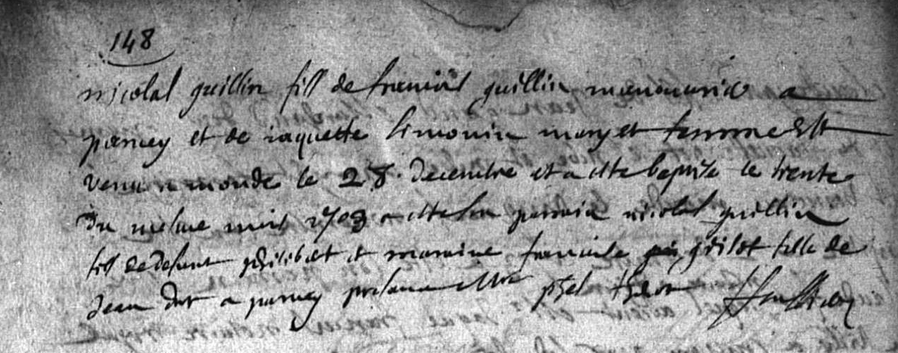 148
nicolas guillin fils de francois guillin manouvrier a
parcey et de jaquette limonin mary et femme est
venu o monde le 28 decembre et a este baptisé le trente
du mesme mois 1708 a este son parrain nicolas guillin
fils de defunt philibert et maraine francoise grilot fille de
Jean a parcey